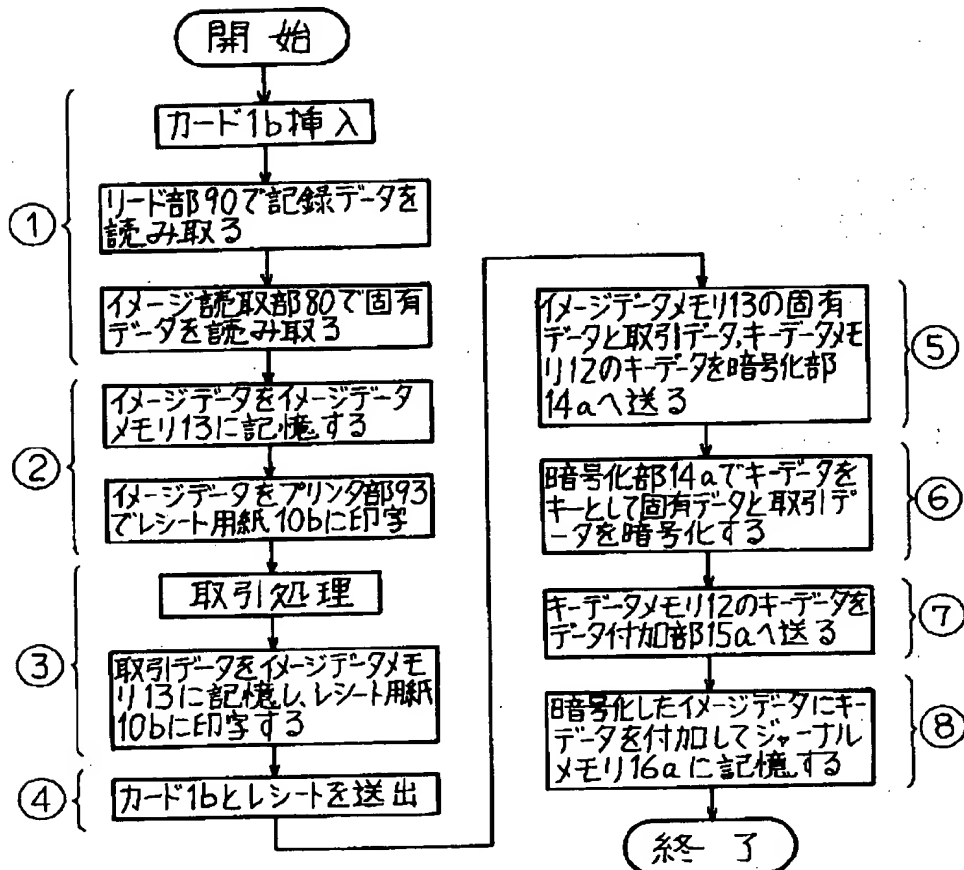 開始
①
カード1b挿入
リード部90で記録データを
読み取る
イメージ読取部80で固有
データを読み取る
②
イメージデータをイメージデータ
メモリ13に記憶する
イメージデータをプリンタ部93
でレシート用紙10bに印字
③
取引処理
取引データをイメージデータメモ
リ13に記憶し、レシート用紙
10bに印字する
④
カード1bとレシートを送出
イメージデータメモリ13の固有
データと取引データ、キーデータメモ
リ12のキーデータを暗号化部
14aへ送る
⑤
暗号化部14aでキーデータを
キーとして固有データと取引デ
ータを暗号化する
⑥
キーデータメモリ12のキーデータを
データ付加部15aへ送る
⑦
暗号化したイメージデータにキー
データを付加してジャーナル
メモリ16aに記憶する
⑧
終了